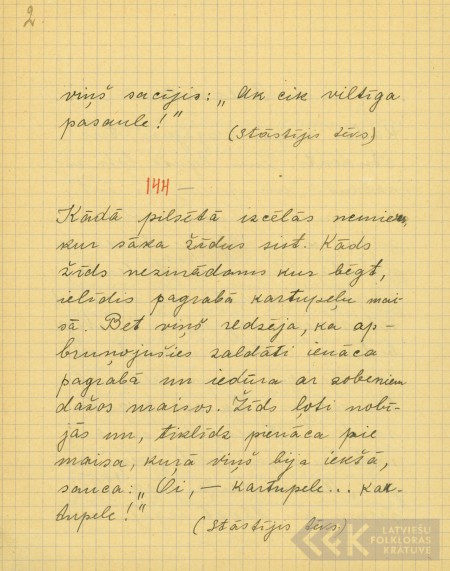 2
viņš sacījis: „Ak cik viltīga
pasaule!"
(Stāstījis tēvs)
144 —
Kādā pilsētā izcēlās nemieri,
kur sāka žīdus sist. Kāds
žīds nezinādams kur bēgt,
ielīdis pagrabā kartupeļu mai-
sā. Bet viņš redzēja, ka ap-
bruņojušies zaldāti ienāca
pagrabā un iedūra ar zobeniem
dažos maisos. Žīds ļoti nobi-
jās un, tiklīdz pienāca pie
maisa, kurā viņš bija iekšā,
sauca: „Oi, — kartupele... kar-
tupele!"
(Stāstījis tēvs)
LATVIEŠU
FOLKLORAS
KRĀTUVE